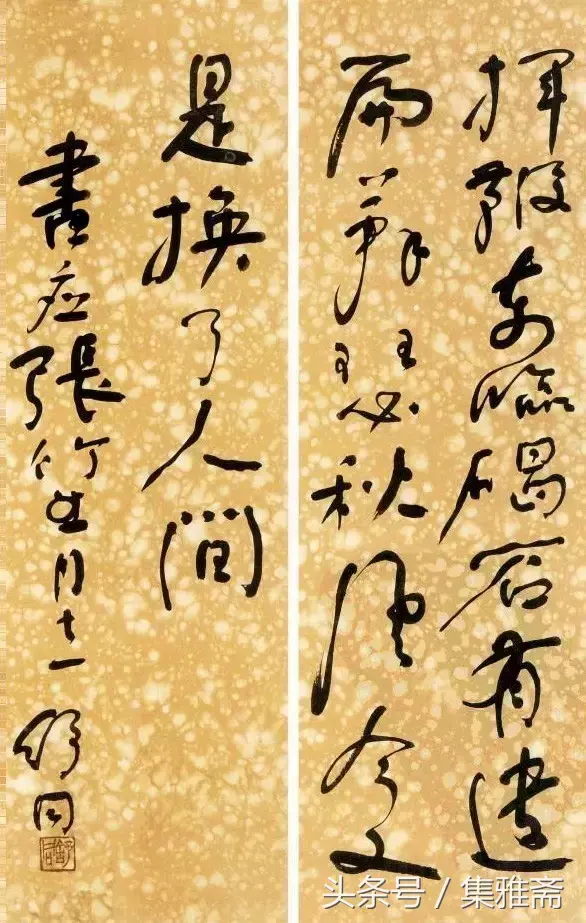 揮鞭東臨碣石有遺
篇蕭瑟秋風今又
是換了人間
書應張竹生同志 舒同
头条号 / 集雅斋